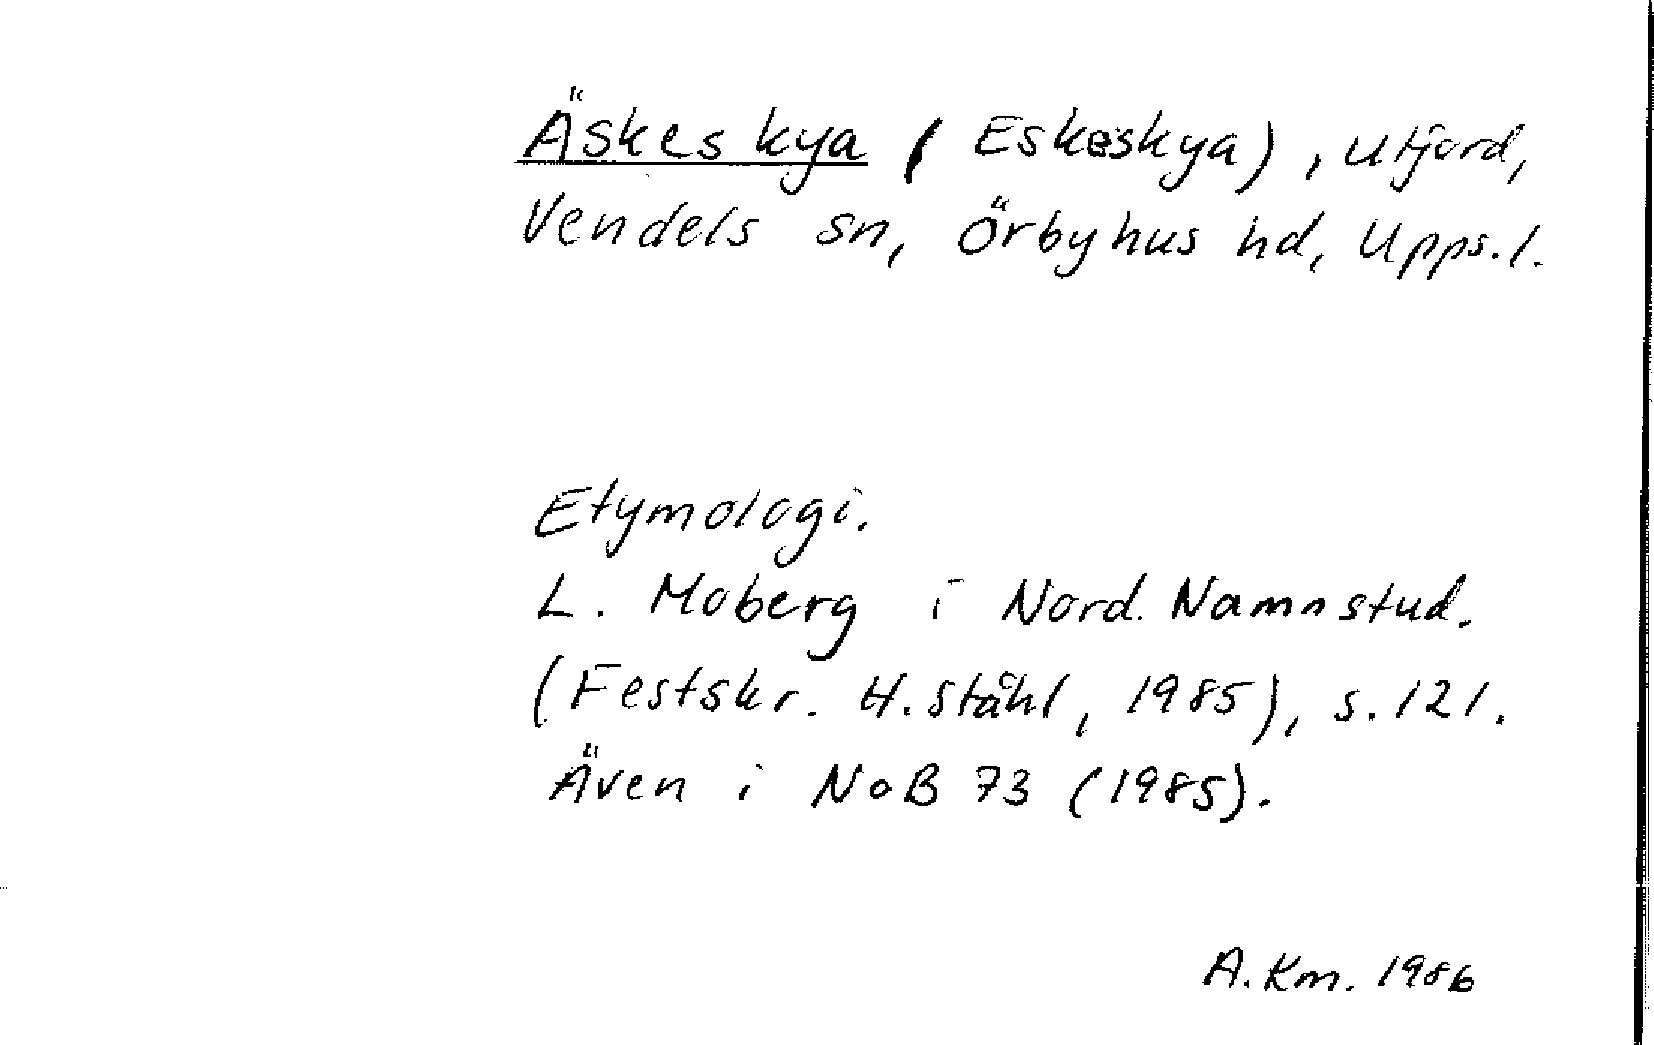 Äskeskya (Eskeskya), utjord,
Vendels sn, Örbyhus hd, Upps. l.
Etymologi.
L. Moberg i Nord. Namnstud.
(Festskr. H. Ståhl, 1985), s. 121.
Även i NoB 73 (1985).
A. Km. 1986